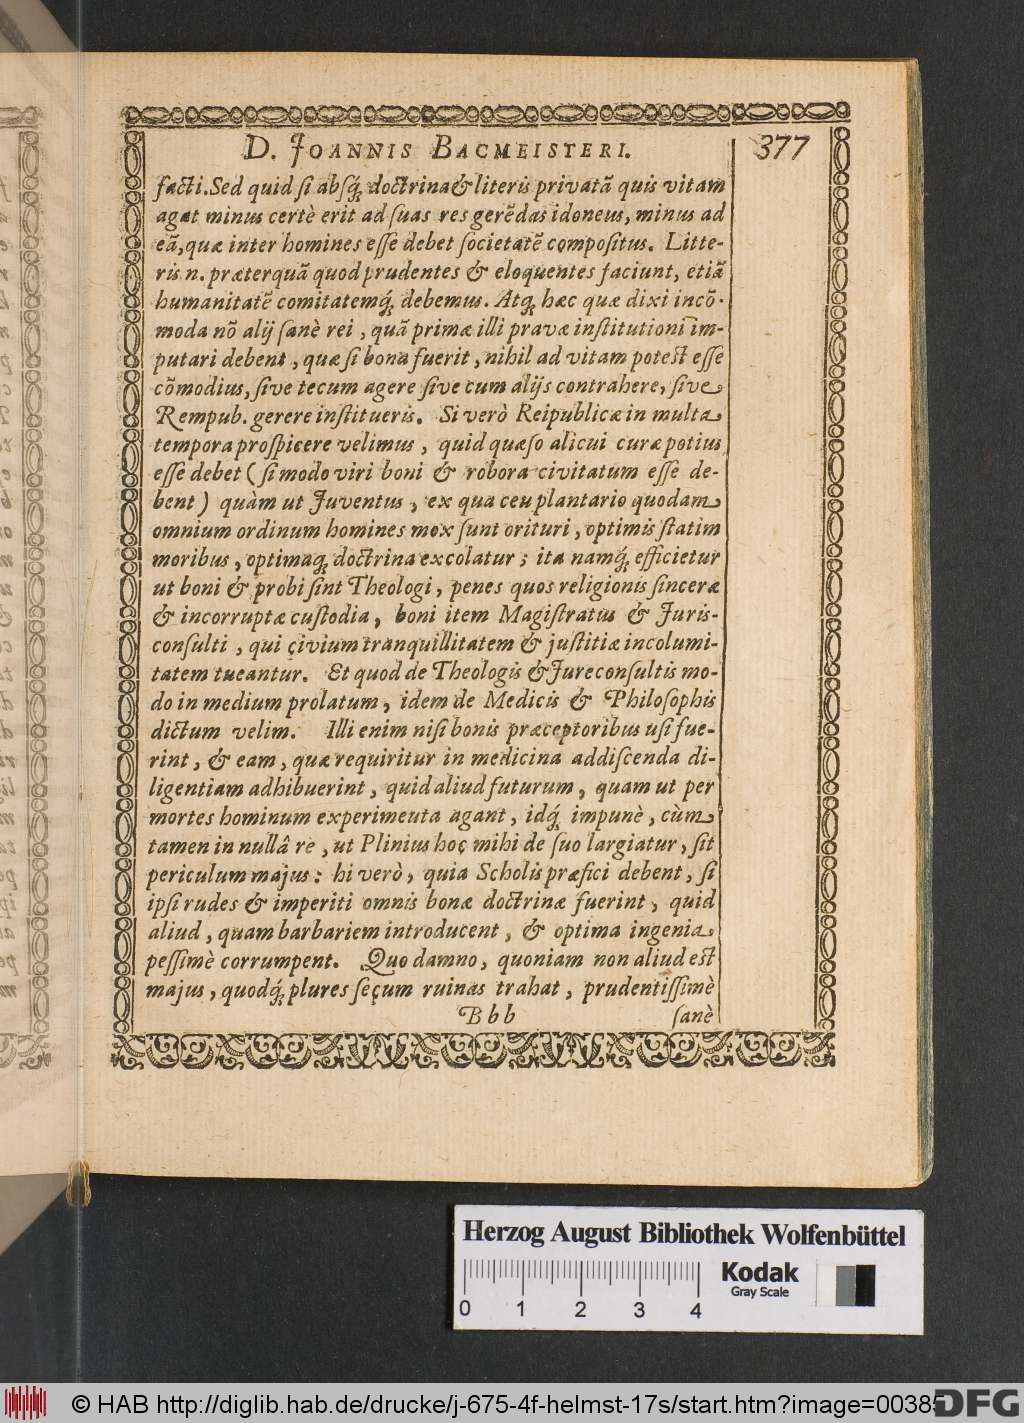 D. JOANNIS BACMEISTERI. 377
facti. Sed quid si absq́; doctrina & literis privatā quis vitam
agat minus certè erit ad suas res gerēdas idoneus, minus ad
eā, quæ inter homines esse debet societatē compositus. Litte-
ris n. præterquā quod prudentes & eloquentes faciunt, etiā
humanitatē comitatemq́; debemus. Atq; hæc quæ dixi incō-
moda nō alij sanè rei, quā primæ illi pravæ institutioni im-
putari debent, quæ si bona fuerit, nihil ad vitam potest esse
cōmodius, sive tecum agere sive cum alijs contrahere, sive
Rempub. gerere institueris. Si verò Reipublicæ in multa
tempora prospicere velimus, quid quæso alicui curæ potius
esse debet (si modo viri boni & robora civitatum esse de-
bent) quàm ut Juventus, ex qua ceu plantario quodam
omnium ordinum homines mox sunt orituri, optimis statim
moribus, optimaq; doctrina excolatur; ita namq́; efficietur
ut boni & probi sint Theologi, penes quos religionis sinceræ
& incorruptæ custodia, boni item Magistratus & Juris-
consulti, qui civium tranquillitatem & justitiæ incolumi-
tatem tueantur. Et quod de Theologis & Jureconsultis mo-
do in medium prolatum, idem de Medicis & Philosophis
dictum velim. Illi enim nisi bonis præceptoribus usi fue-
rint, & eam, quæ requiritur in medicina addiscenda di-
ligentiam adhibuerint, quid aliud futurum, quam ut per
mortes hominum experimeuta agant, idq́; impunè, cùm
tamen in nullâ re, ut Plinius hoc mihi de suo largiatur, sit
periculum majus: hi verò, quia Scholis præfici debent, si
ipsi rudes & imperiti omnis bonæ doctrinæ fuerint, quid
aliud, quam barbariem introducent, & optima ingenia
pessimè corrumpent. Quo damno, quoniam non aliud est
majus, quodq́; plures secum ruinas trahat, prudentissimè
Bbb sanè
Herzog August Bibliothek Wolfenbüttel
0 1 2 3 4
Kodak
Gray Scale
© HAB http://diglib.hab.de/drucke/j-675-4f-helmst-17s/start.htm?image=00385
DFG